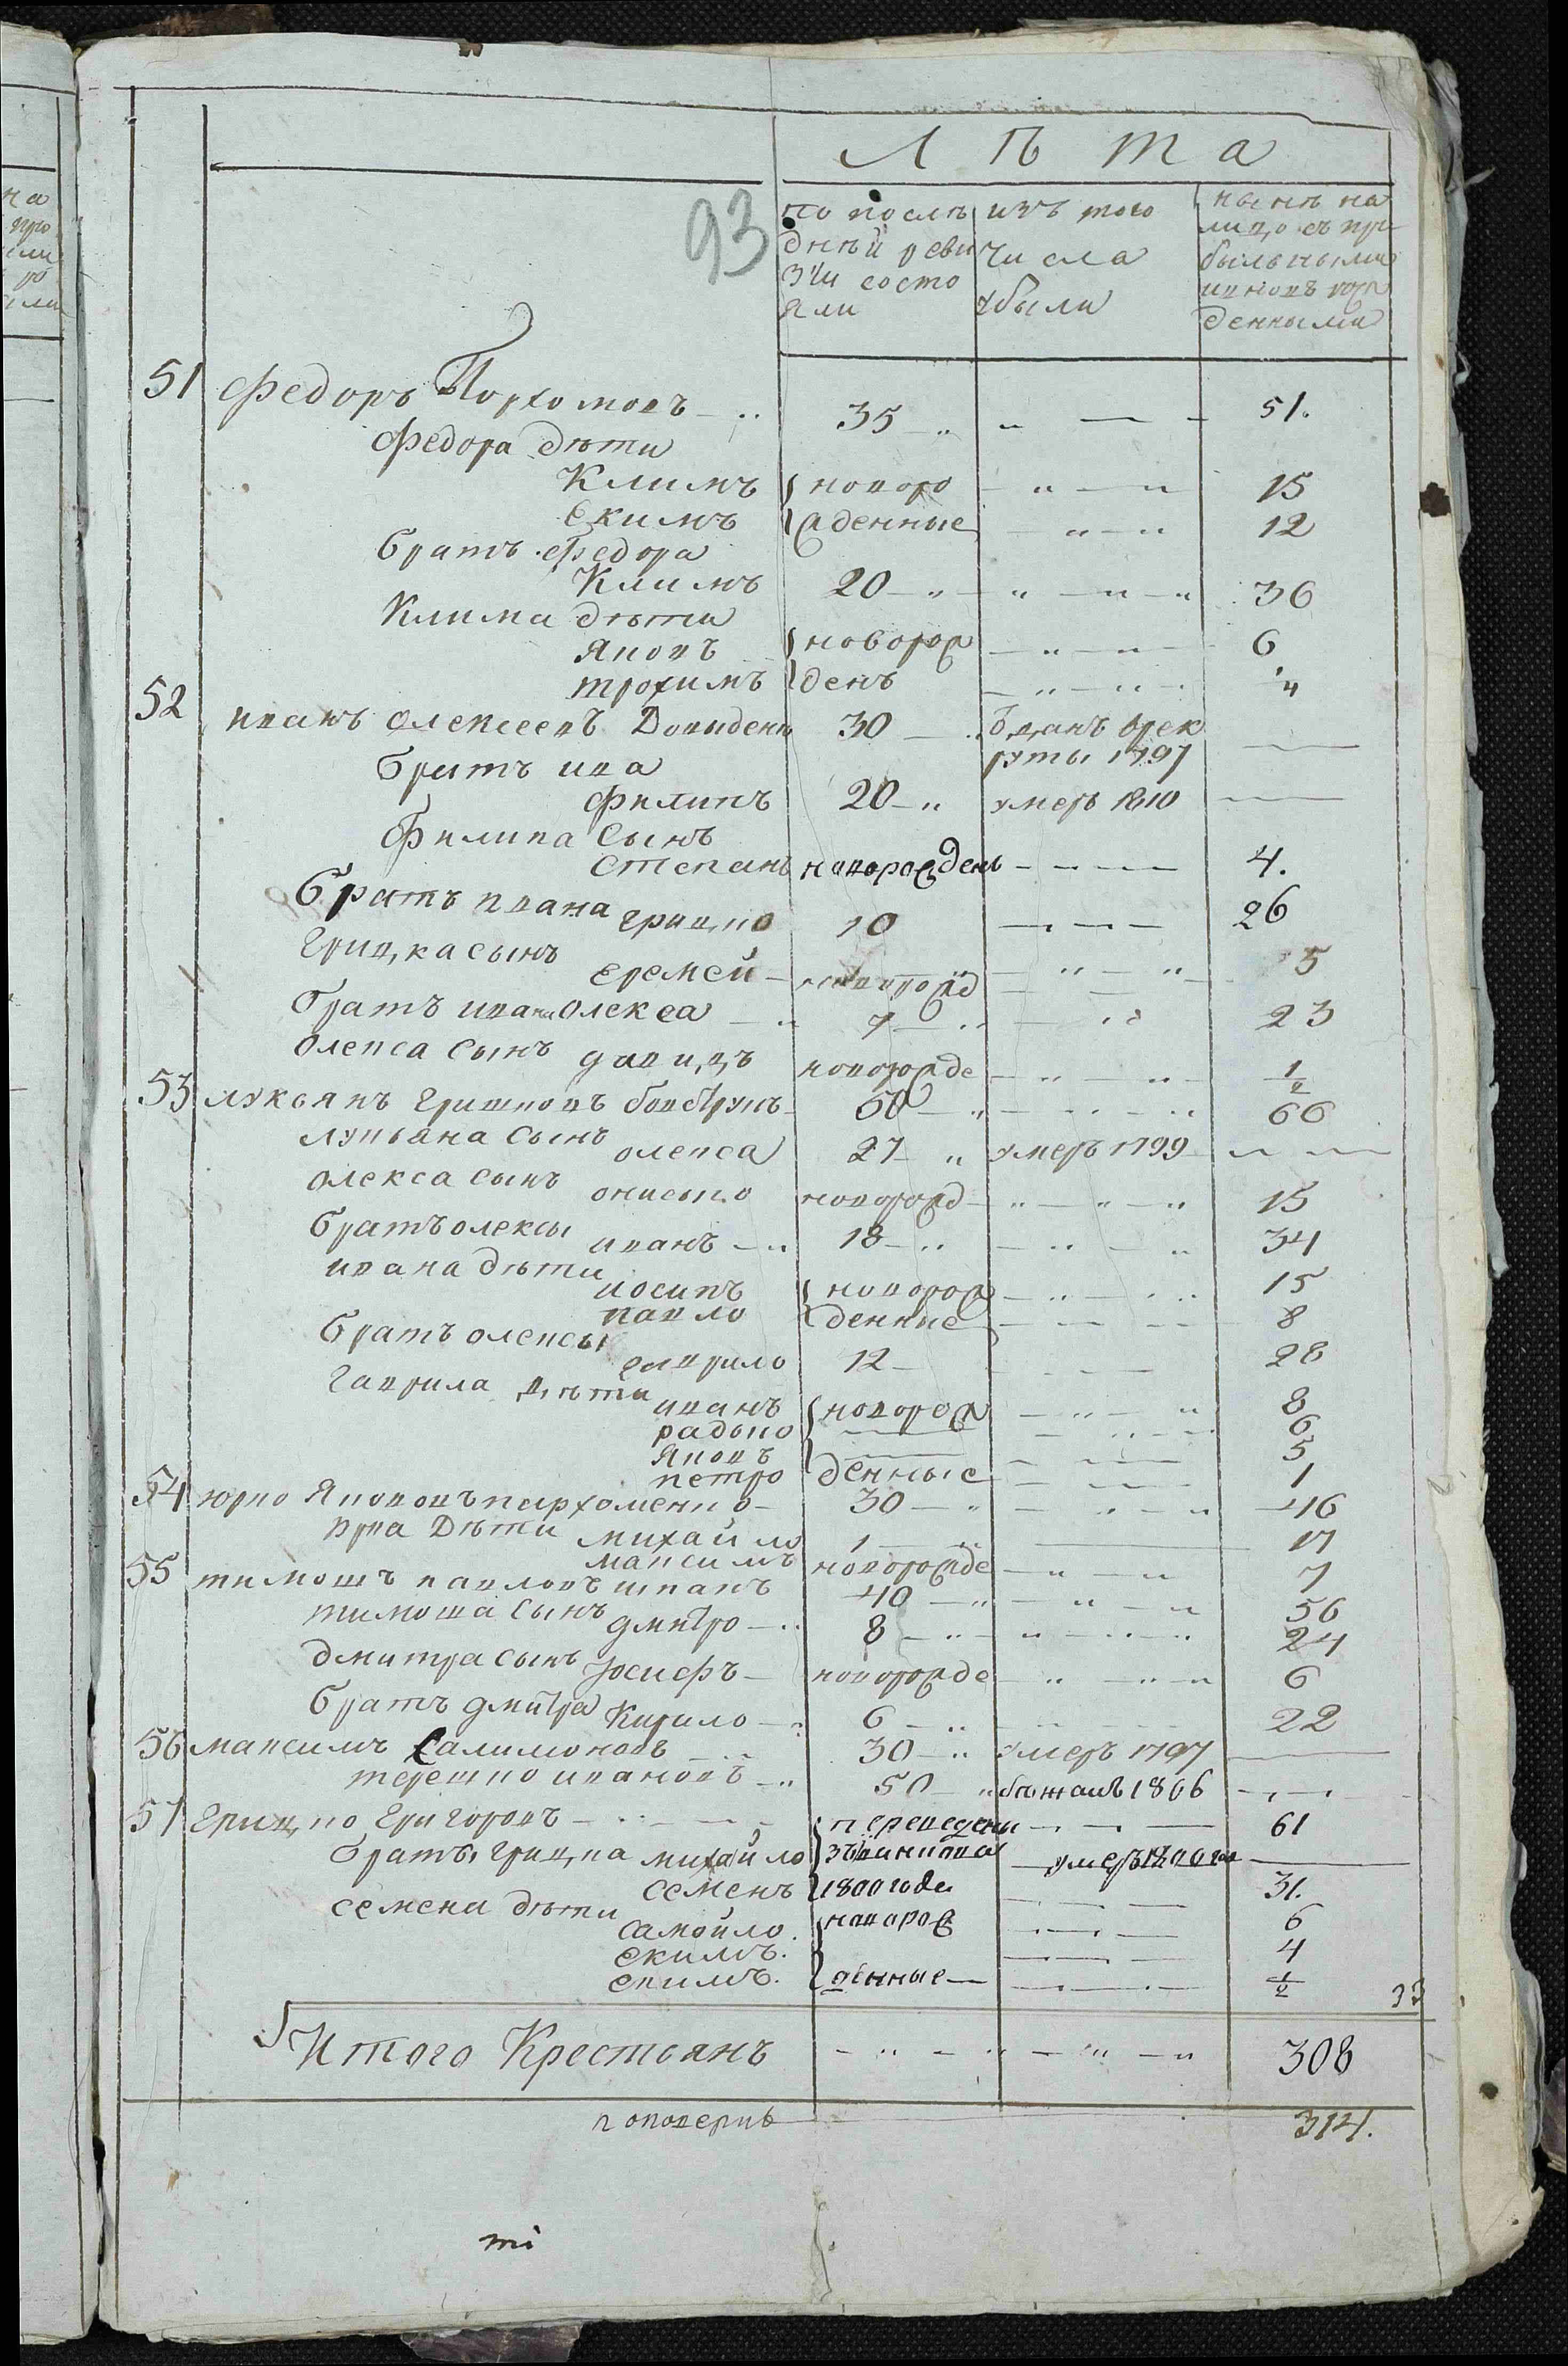 Лѣта
93
по послѣ изъ того нынѣ на
дней реви числа лицо съ при
зіи состо убыли быльными
яли и новъ рож
денными
51 Федоръ Пархомовъ 35 51.
Федора дѣти
Климъ новоро 15
Екимъ жденные 12
братъ Федора
Климъ 20 36
Клима дѣти
Яковъ новорож 6
трохимъ денъ 4
52 иванъ Олексеевъ 30 въ рек
руты 1797
братъ ива
филипъ 20 умеръ 1810
Филипа Сынъ
Степанъ новорожденъ 4.
братъ ивана грицко 10 26
Грицка сынъ еремей новорожд 5
братъ ивана Олекса 7 23
Олекса Сынъ давидъ новорожде 1/2
53 лукьянъ Гришковъ 50 66
лукьяна Сынъ олекса 27 умеръ 1799
олекса сынъ онисько новорожд 15
братъ олексы иванъ 18 34
ивана дѣти иосипъ новорож 15
павло денные 8
братъ олексы гаврило 12 28
Гаврила дѣти иванъ новорож 8
радько 6
Яковъ 5
петро денные 1
54 юрко Якововъ пархоменко 30 46
юрка Дѣти михайло 1 17
максимъ новорожде 7
55 тимошъ павловъ шпакъ 40 56
тимоша Сынъ дмитро 8 24
дмитра сынъ Іосифъ новорожде 6
братъ дмитра Кирило 6 22
56 максимъ Салимоновъ 30 умеръ 1797
терешко ивановъ 50 бѣжалъ 1806
57 Грицко Григоровъ переведены 61
братъ грицка михайло умеръ 1800 го
семенъ 1800 года 31.
семена дѣти самойло новорож 6
екимъ. 4
екимъ. денные 1/2
33
Итого Крестьянъ 308
314.